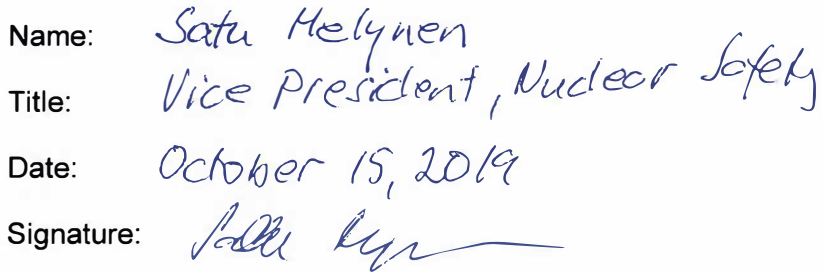 Name: Satu Helynen
Title: Vice President, Nuclear Safety
Date: October 15, 2019
Signature: Satu